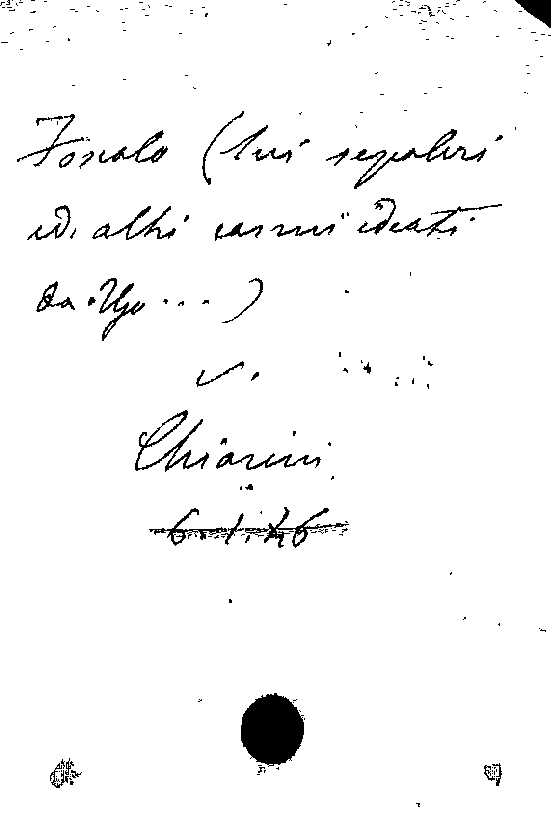 Foscolo (Sui sepolcri
ed altri carmi ideati
da Ugo ... )
v.
Chiarini
6.1.46